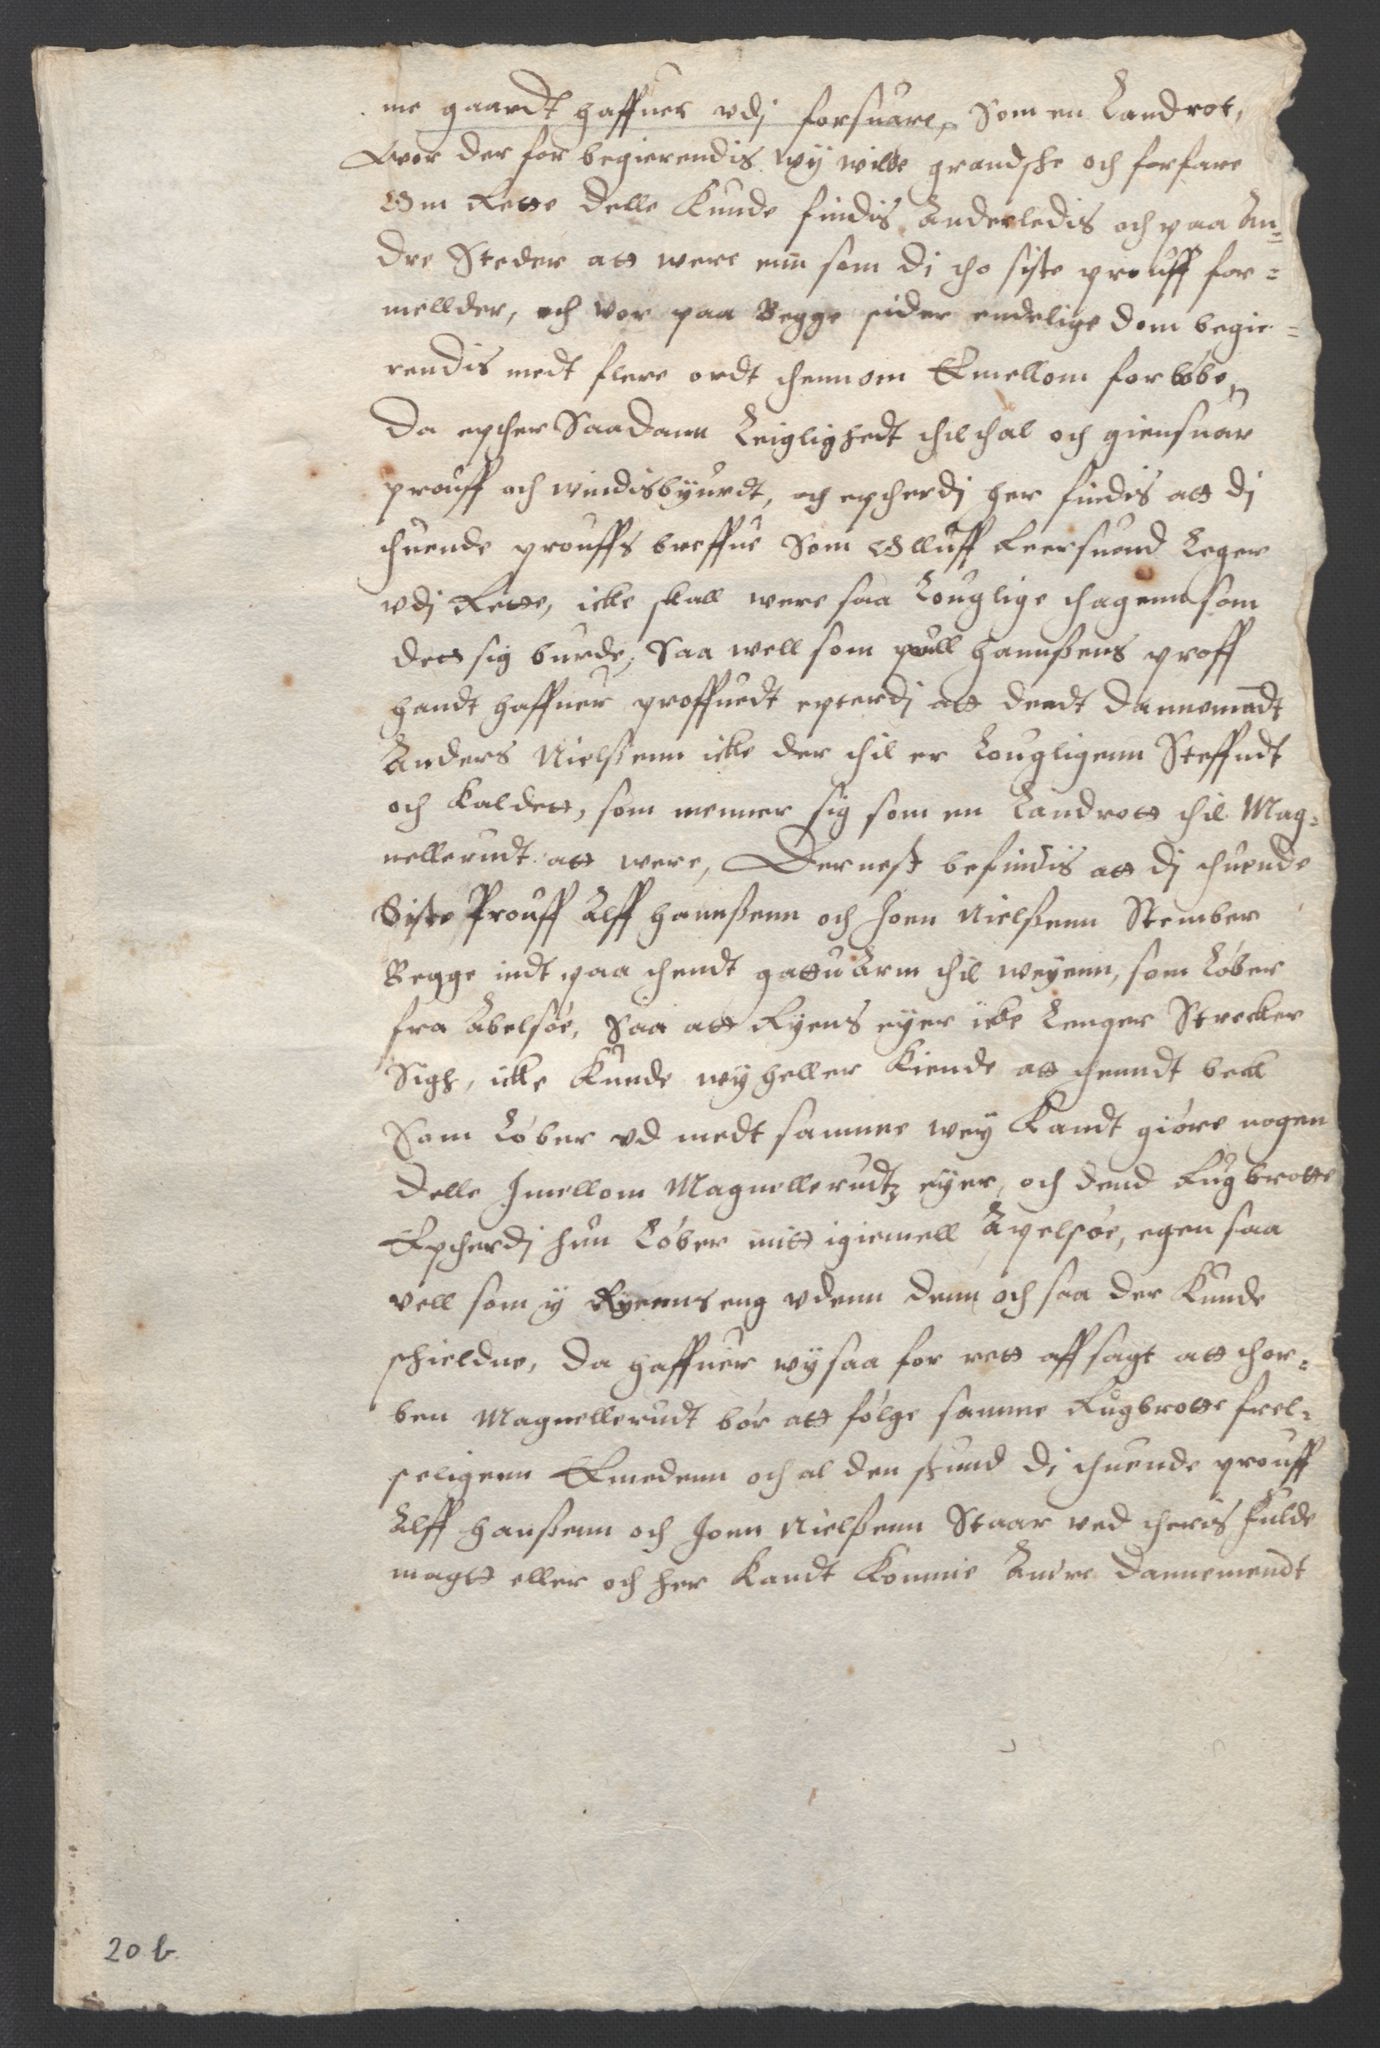 me gaardt haffuer vdj forsuare, Som en Landrot,
Wor der for begierendis wÿ wilde grandske och forfare
Om Rette delle Kunde findis Anderledis och paa An-
dre Steder att were enn som di tho siste prouff for-
mellder, och wor paa Begge sider endelige dom begie-
rendis medt flere ordt thennom Emellom forløbe,
Da epther Saadann Leiglighedt thil thal och giensuar
prouff och windisbyurdt, och eptherdj her findis att di
thuende prouffs breffue Som Olluff Leersuend Leger
vdj Rette, icke skall were saa Louglige thagenn som
dett sig burde, Saa well som poull Hannßens proff
handt haffuer proffuedt epterdj att dendt dannemandt
Anders Nielßenn icke der thil er Lougligenn Steffndt
och kaldett, som menner sig som en Landrott thil Mag-
nellerudt att were, Dernest befindis att di thuende
Siste Prouff Alff Hannßenn och Joen Nielßenn Stember
Begge indt paa thendt gattu Arm thil weyenn, som Løber
fra Abelsøe, Saa att Ryens eyer icke Lenger Strecker
Sigh, icke kunde wÿ heller kiende att thenndt beck
Som Løber vd medt samme wey kandt giøre nogen
delle Imellom Magnellerudtz eyer, och dend Rugbrotte
Eptherdj hun Løber mitt igiemell Apelsøe, egen saa
vell som y Ryenns eng vdenn denn och saa der kunde
skieldne, da haffuer wÿ saa for rett aff sagt att thor-
ben Magnellerudt bør att følge samme Rugbrotte frel-
seligenn Emedenn och al den stund di thuende prouff
Alff Hanßenn och Joen Nielßenn Staar ved theris fulde
magtt eller och her kandt komme Andre Dannemendt
20 b.